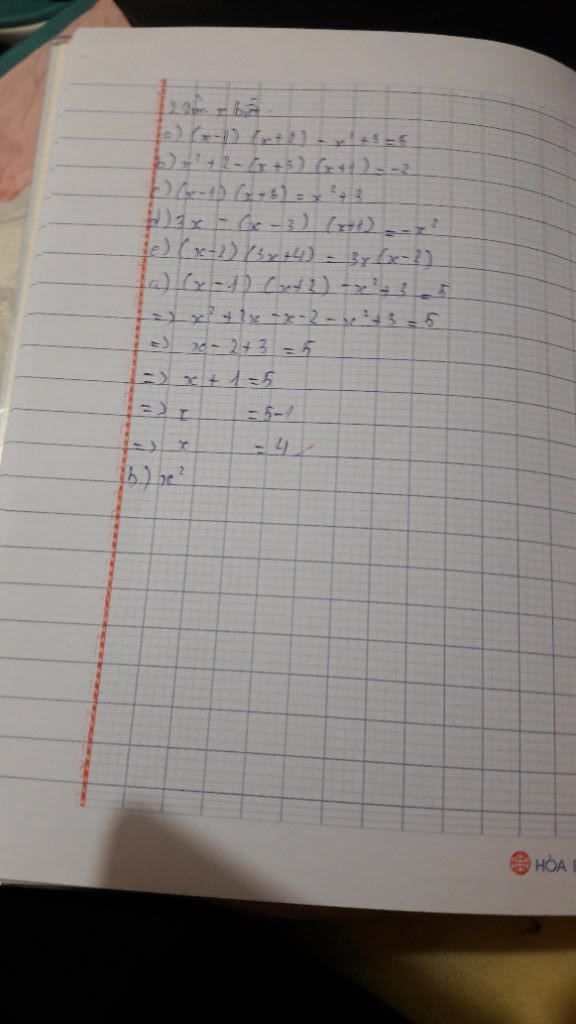 a) (x-1) (x+2) - x² + 3 = 5
b) x² + 2 - (x+3) (x+1) = -2
c) (x-1) (x+3) = x² + 3
d) 3x - (x-3) (x+1) = -x²
e) (x-2) (3x+4) = 3x(x-2)
a) (x-1) (x+2) - x² + 3 = 5
=> x² + 2x - x - 2 - x² + 3 = 5
=> x - 2 + 3 = 5
=> x + 1 = 5
=> x = 5-1
=> x = 4
b) x²
HÒA